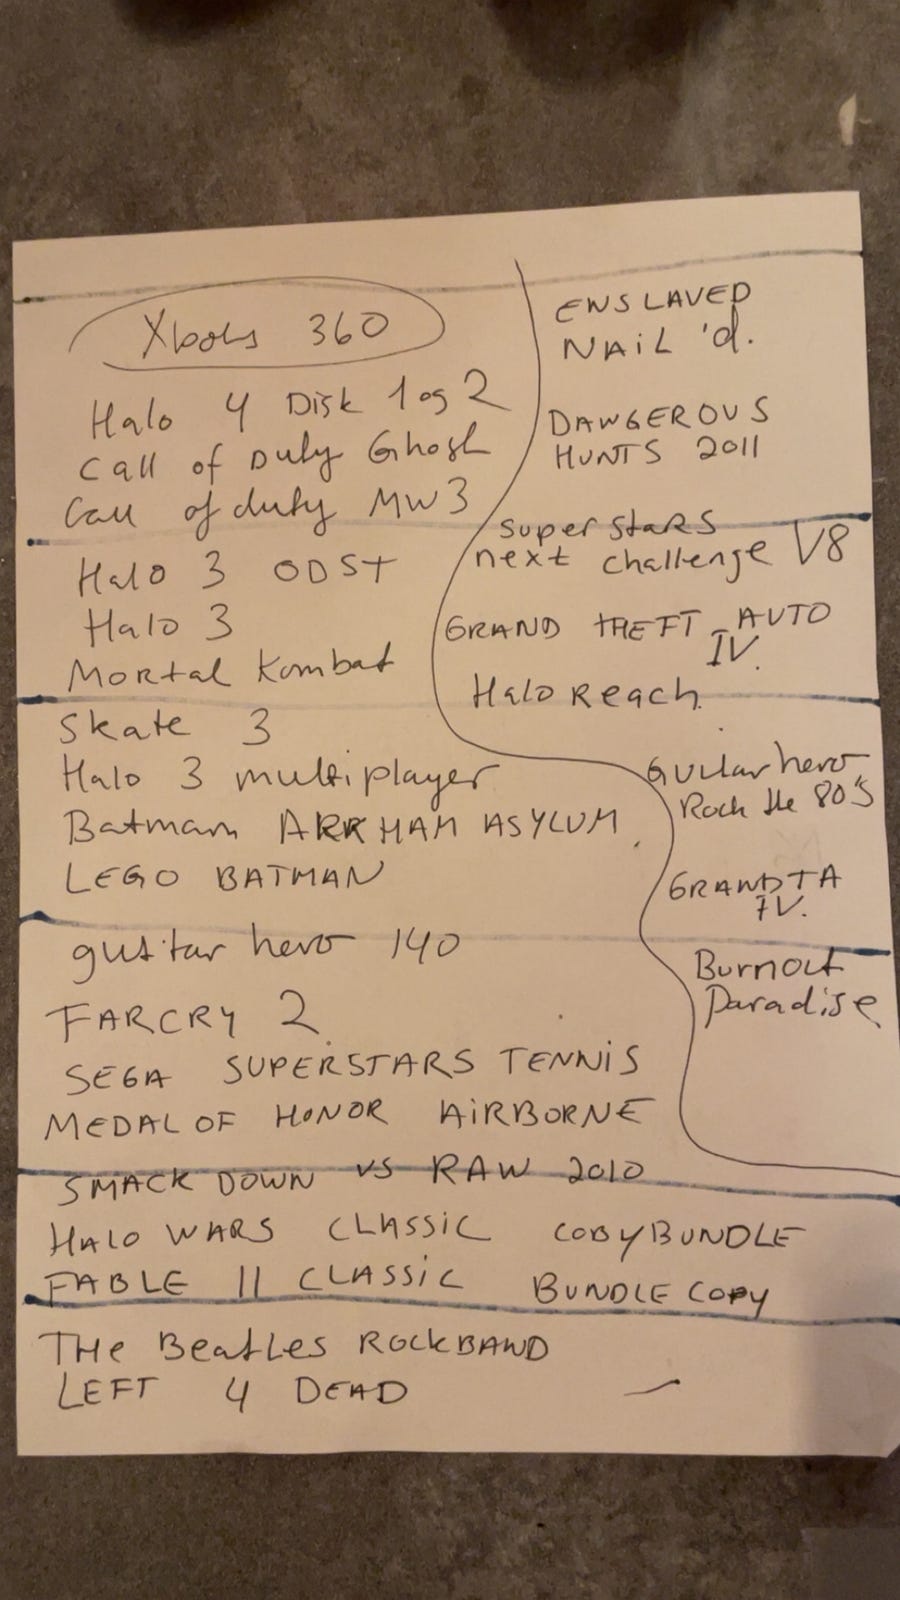 Xboks 360
Halo 4 Disk 1 og 2
Call of Duty Ghost
Call of duty MW3
Halo 3 ODST
Halo 3
Mortal Kombat
Skate 3
Halo 3 multiplayer
Batman ARKHAM ASYLUM
LEGO BATMAN
guitar hero 140
FARCRY 2
SEGA SUPERSTARS TENNIS
MEDAL OF HONOR AIRBORNE
SMACK DOWN VS RAW 2010
HALO WARS CLASSIC COBY BUNDLE
FABLE II CLASSIC BUNDLE COPY
THe BeatLes ROCKBAND
LEFT 4 DEAD
ENSLAVED
NAiL 'd.
DANGEROUS
HUNTS 2011
super staRS
next challenge V8
GRAND THEFT AUTO
IV.
Halo Reach
Guitar hero
Rock the 80's
GRAND TA
IV.
Burnout
Paradise